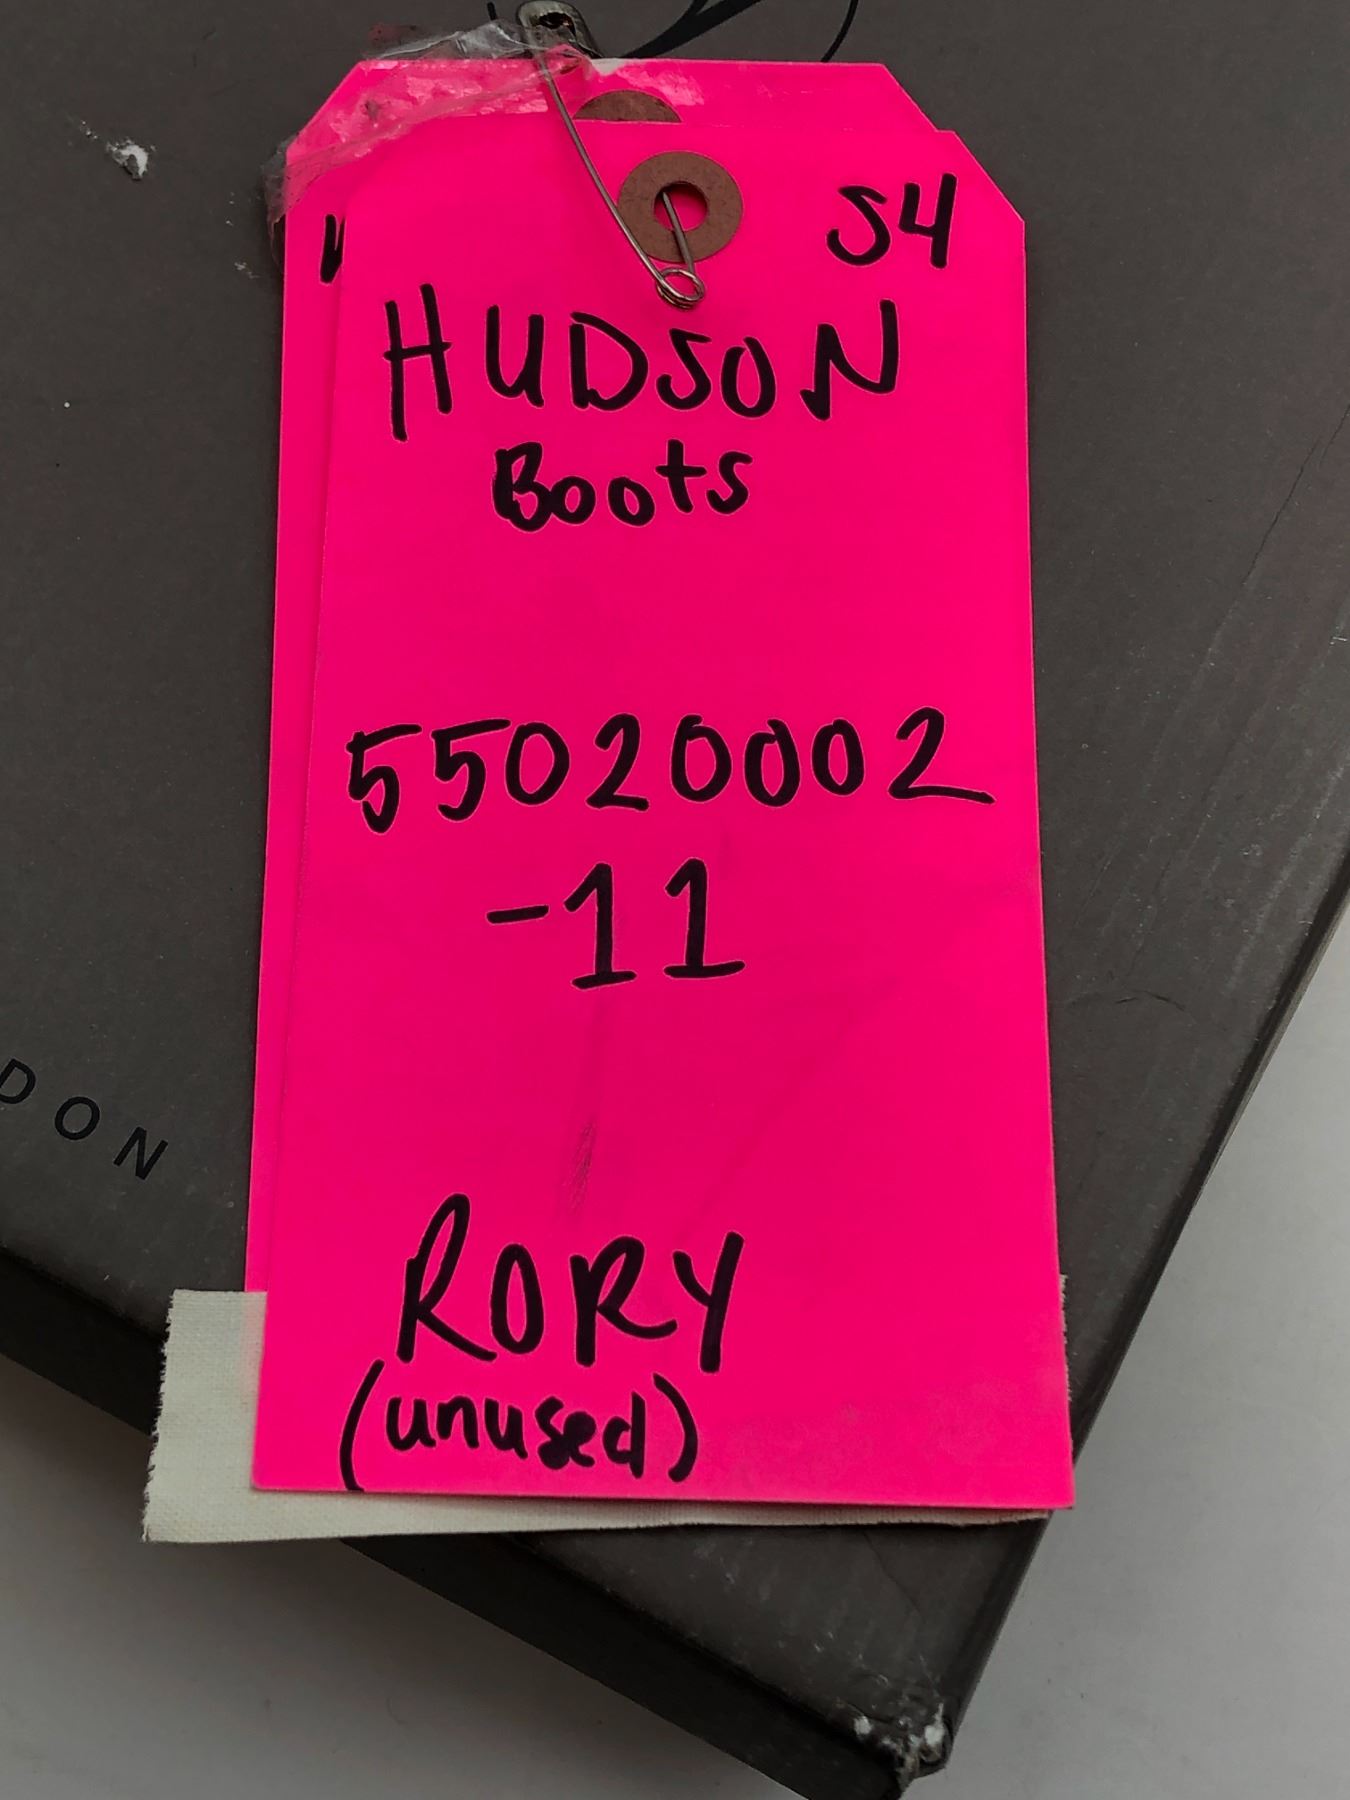 S4
HUDSON
Boots
55020002
-11
RORY
(unused)
DON